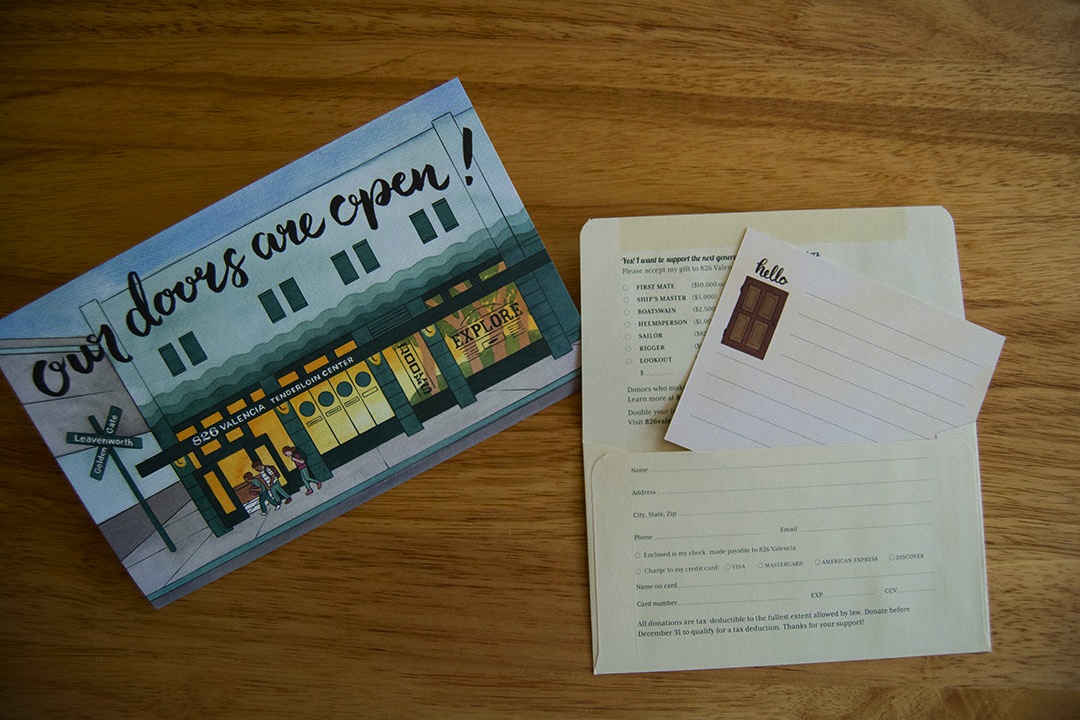 our doors are open!
EXPLORE
ROOMS
826 VALENCIA TENDERLOIN CENTER
Leavenworth
Golden Gate
Yes! I want to support the next
Please accept my gift to 826
FIRST MATE ($10,000
SHIP'S MASTER ($5,000)
BOATSWAIN
HELMSPERSON
SAILOR
RIGGER
LOOKOUT
$
Donors who
Learn more at
Double your
Visit
hello
Name
Address
City, State, Zip
Phone Email
Enclosed is my check, made payable to 826 Valencia
Charge to my credit card: VISA MASTERCARD AMERICAN EXPRESS DISCOVER
Name on card
Card number EXP. CCV
All donations are tax-deductible to the fullest extent allowed by law. Donate before
December 31 to qualify for a tax deduction. Thanks for your support!